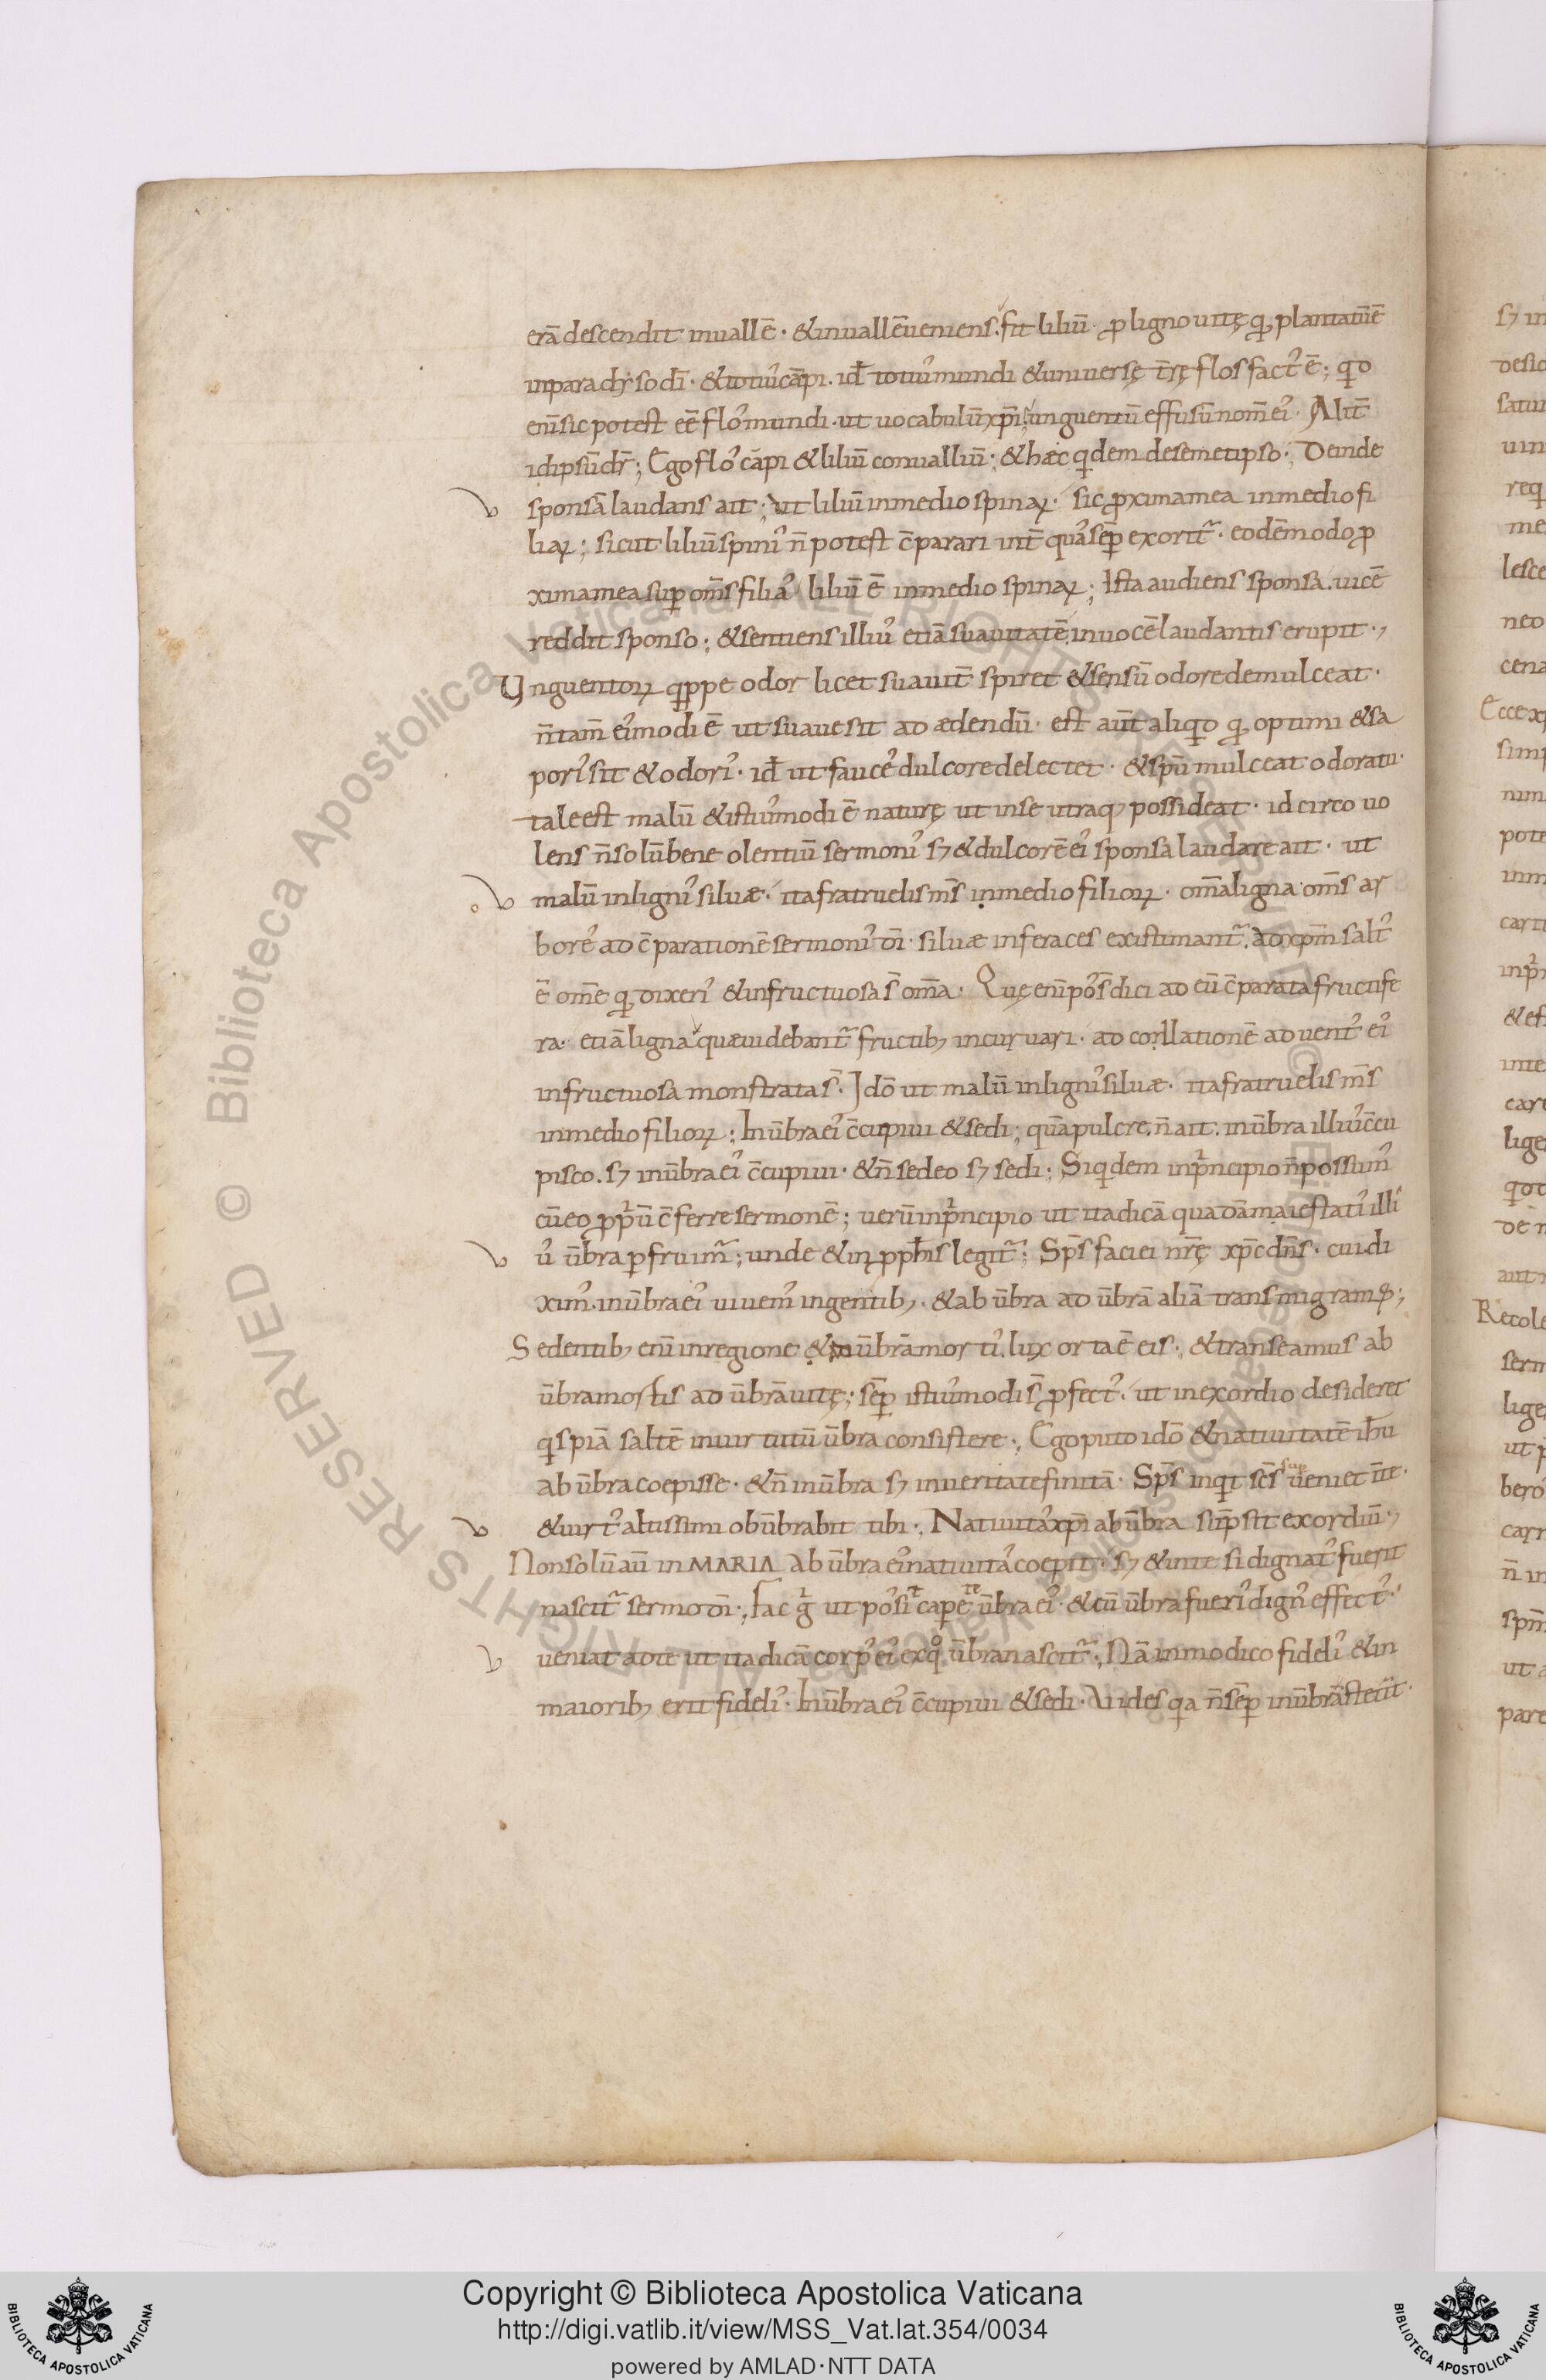 erā descendit inuallē · &inuallēueniens · fit liliū · ꝓ lignouitę qđ plantatūē
inparadẏsodī · &totiuꝰcāpi · id̄ totiuꝰmundi &uniuersę t̄rę flos factꝰ ē ; qͥd
eni̅sic potest eē floꝰmundi · ut uocabulū xp̄i ; unguentū effusū nom̄ eiꝰ · Alit̄
idipsūdr̄ ; Ego floꝰ cāpi &liliū conualliū ; &hæc qͥdem desemetipso ; Deinde
sponsā laudans ait ; ut liliū inmedio spinaꝝ · sic ꝓximamea inmedio fi
liaꝝ ; sicut liliū spiniꝰ n̄ potest c̄parari int̄ quaꝰ sēp exorit᷑ · eodēmodo ꝓ
ximamea suꝑ om̄s filiaꝰ liliū ē inmedio spinaꝝ ; Ista audiens sponsa · uicē
reddit sponso ; &sentiens illiuꝰ etiā suauitatē · inuocē laudantis erupit ·,
Unguentoꝝ qͥppe odor licet suauit̄ spiret &sensū odore demulceat ·
n̄tam̄ eiꝰmodi ē ut suaue sit ad ædendū · est aūt aliqͥd qđ optimi &sa
poriꝰ sit &odoriꝰ · id̄ ut fauceꝰ dulcore delectet · &sp̄u mulceat odoratu ·
tale est malū &istiuꝰmodi ē naturę ut inse utraqꝫ possideat · id circo uo
lens n̄solū bene olentiū sermoniꝰ sꝫ &dulcorē eiꝰ sponsa laudare ait · ut
malū inligniꝰ siluæ · ita fratruelis m̄s inmedio filioꝝ · om̄aligna · om̄s ar
boreꝰ ad c̄parationē sermoniꝰ dī · siluæ inferaces existimant᷑ · ad xp̄m saltꝰ
ē om̄e qđ dixeriꝰ &infructuosa s̄ om̄a · Quę eni̅ poꝰs̄ dici ad eū c̄parata fructife
ra · etiā ligna quæuidebant᷑ fructibꝫ incuruari · ad conllationē aduentꝰ eiꝰ
infructuosa monstrata s̄ · Idō ut malū inligniꝰ siluæ · ita fratruelis m̄s
inmedio filioꝝ ; Inūbra eiꝰ c̄cupiui &sedi ; quā pulcre · n̄ ait · inūbra illiuꝰ c̄cu
pisco · sꝫ inūbra eiꝰ c̄cupiui · &n̄ sedeo sꝫ sedi ; Siqͥdem inpͥncipio n̄ possumꝰ
cū eo ꝓpͥū c̄ferre sermonē ; uerū inpͥncipio ut ita dicā quadā maiestatiꝰ illi
uꝰ ūbra ꝑfruim᷑ ; unde &in ꝓph̄is legit᷑ ; Sp̄s faciei nr̄ę xp̄c dn̄s · cui di
ximꝰ · inūbra eiꝰ uiuemꝰ ingentibꝫ · &ab ūbra ad ūbrā aliā transmigramꝰ ;
Sedentibꝫ eni̅ inregione &in ūbrā mortiꝰ · lux orta ē eis · &transeamus ab
ūbramortis ad ūbrā uitę · sēp istiuꝰmodi s̄ ꝓfectꝰ · ut inexordio desideret
qͥspiā saltē inuirtutū ūbra consistere · Ego puto idō &natiuitatē ih̄u
ab ūbra coepisse · &n̄ inūbra sꝫ inueritate finitā · Sp̄s inqͥt sc̄s supueniet īte ·
&uirtꝰ altissimi obūbrabit tibi · Natiuitaꝰ xp̄i ab ūbra sūpsit exordiū ·,
Nonsolū aū in MARIA ab ūbra eiꝰ natiuitaꝰ coepit · sꝫ &inte si dignaꝰ fuerit
nascit᷑ sermo dī · Fac gͥ ut poꝰsit capere ūbra eiꝰ · &cū ūbra fueriꝰ dignꝰ effectꝰ ·
ueniat adte ut ita dicā corpꝰ eiꝰ exqͦ ūbra nascit᷑ · Nā inmodico fideliꝰ &in
maioribꝫ erit fideliꝰ · Inūbra eiꝰ c̄cupiui &sedi · Uides qͥa n̄ sēp inūbrā steūit ·
Copyright © Biblioteca Apostolica Vaticana
http://digi.vatlib.it/view/MSS_Vat.lat.354/0034
powered by AMLAD·NTT DATA